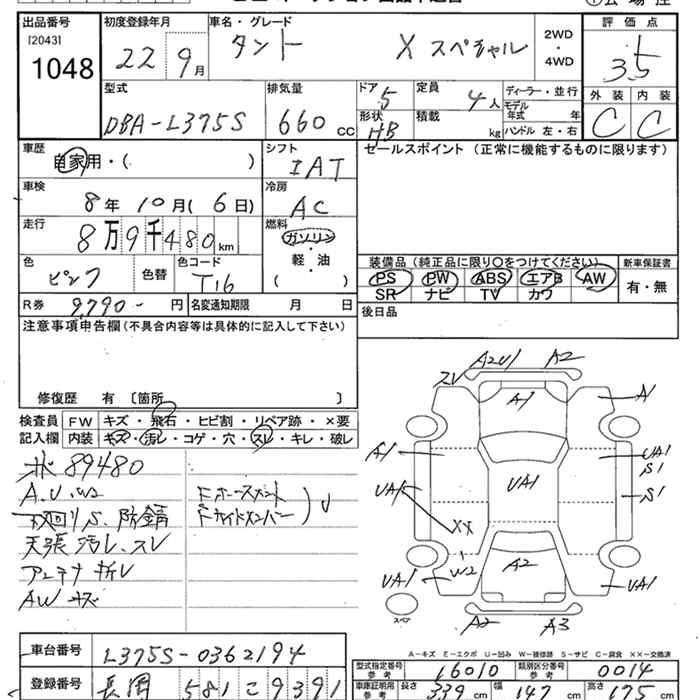 出品番号 初度登録年月 車名・グレード 2WD ・ 4WD 評価点
[2043] 1048 22年 9月 タント X スペシャル 3.5
型式 排気量 ドア 5 定員 4人 ディーラー・並行 外装 内装
DBA-L375S 660 cc 形状 HB 積載 kg モデル年式 年 C C
ハンドル 左・右
車歴 シフト セールスポイント (正常に機能するものに限ります)
自家用・( ) IAT
車検 冷房
8年 10月 (6日) AC
走行 燃料
8万9千480km ガソリン ・ 軽・油 ( )
色 色替 色コード 装備品 (純正品に限り○をつけてください) 新車保証書
ピンク T16 PS PW ABS エアB AW 有・無
SR ナビ TV カワ
R券 9,790- 円 名変通知期限 月 日 後日品
注意事項申告欄 (不具合内容等は具体的に記入して下さい)
修復歴 有 〔箇所 〕
検査員 FW キズ・飛石・ヒビ割・リペア跡・×要
記入欄 内装 キズ・汚レ・コゲ・穴・スレ・キレ・破レ
89480
A.U.W2
下廻りS.防錆
天張汚レ.スレ
アンテナ折レ
AWキズ
Fホースメント
Fサイドメンバー
U
A2U1 A2
スレ A1 A1
A1 UA1 S1
UA1 UA1 S1
XX
W2 A2
UA1 UA1
スペア A2 A3
A-キズ E-エクボ U-凹み W-補修跡 S-サビ C-腐食 ××-交換済
車台番号 L375S-0362194
型式指定番号 参考 16010 類別区分番号 参考 0014
登録番号 長岡 581 こ 9391
車庫証明用 参考 長さ 339cm 幅 147cm 高さ 175cm